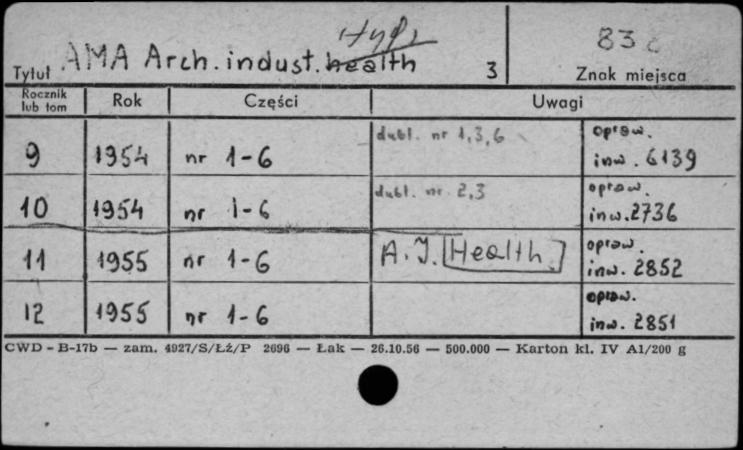 Hyg.
Tytuł AMA Arch. indust. health 3
83
Znak miejsca
Rocznik lub tom Rok Części Uwagi
9 1954 nr 1-6 dubl. nr 1,3,6 opraw. inw. 6139
10 1954 nr 1-6 dubl. nr 2,3 opraw. inw. 2736
11 1955 nr 1-6 A. J. Health opraw. inw. 2852
12 1955 nr 1-6 opraw. inw. 2851
CWD - B-17b — zam. 4927/S/Łź/P 2696 — Łak — 26.10.56 — 500.000 — Karton kl. IV A1/200 g